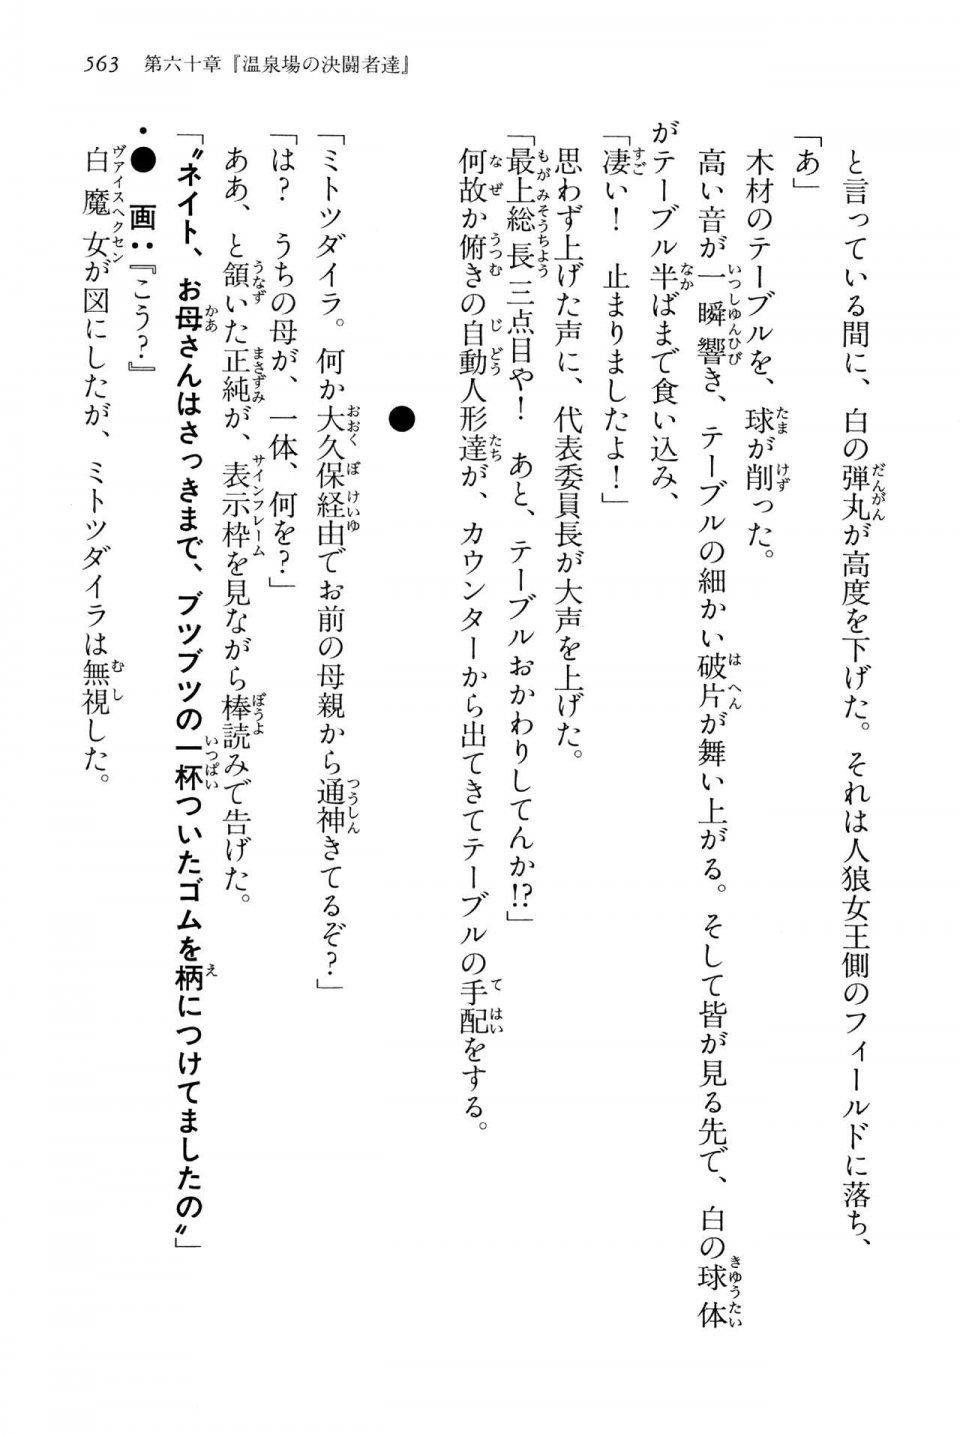 563　第六十章『温泉場の決闘者達』
と言っている間に、白の弾丸が高度を下げた。それは人狼女王側のフィールドに落ち、
「あ」
木材のテーブルを、球が削った。
高い音が一瞬響き、テーブルの細かい破片が舞い上がる。そして皆が見る先で、白の球体
がテーブル半ばまで食い込み、
「凄い！　止まりましたよ！」
思わず上げた声に、代表委員長が大声を上げた。
「最上総長三点目や！　あと、テーブルおかわりしてんか!?」
何故か俯きの自動人形達が、カウンターから出てきてテーブルの手配をする。
●
「ミトツダイラ。何か大久保経由でお前の母親から通神きてるぞ？」
「は？　うちの母が、一体、何を？」
ああ、と頷いた正純が、表示枠を見ながら棒読みで告げた。
「〝ネイト、お母さんはさっきまで、ブツブツの一杯ついたゴムを柄につけてましたの〟」
・●　画：『こう？』
白魔女が図にしたが、ミトツダイラは無視した。